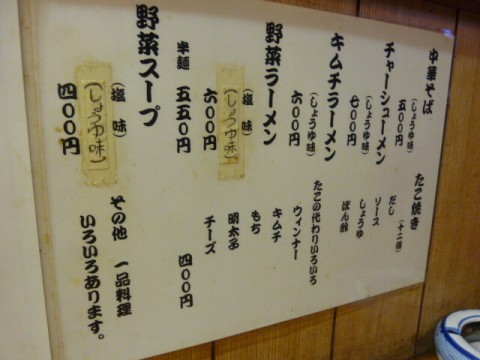 中華そば
(しょうゆ味) 五〇〇円
チャーシューメン
(しょうゆ味) 七〇〇円
キムチラーメン
(しょうゆ味) 六〇〇円
野菜ラーメン
(塩味)
(しょうゆ味)
六〇〇円
半麺 五五〇円
野菜スープ
(塩味)
(しょうゆ味)
四〇〇円
たこ焼き (十二個)
だし
ソース
しょうゆ
ぽん酢
たこの代わりいろいろ
ウィンナー
キムチ
もち
明太子
チーズ
四〇〇円
その他 一品料理
いろいろあります。